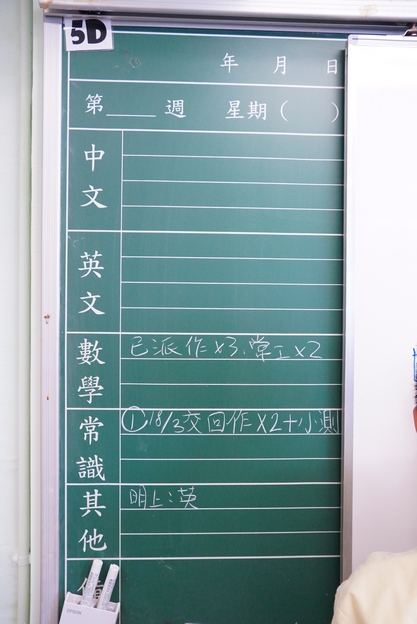 5D
年 月 日
第____週 星期( )
中文
英文
數學
已派作x3、常工x2
常識
①18/3交回作x2+小測
其他
明上:英
EPSON